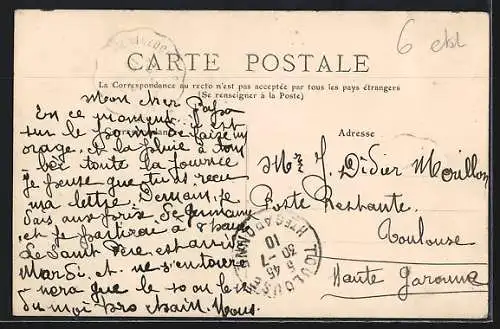 6
CARTE POSTALE
La Correspondance au recto n'est pas acceptée par tous les pays étrangers
(Se renseigner à la Poste)
Mon cher Papa
En ce moment il est
sur le point de faire un
orage, et la pluie a tom
ber toute la journée
Je pense que tu as reçu
ma lettre. Demain, je
vais aux prix. Germaine
et je partirai à 8 h
Le Saint Père est arrivé
Mardi, et ne s'en
nera que le 10 ou le
du mois prochain. Nous
Adresse
Mr J. Didier Morillon
Poste Restante
Toulouse
Haute Garonne
TOULOUSE
HTE GARONNE
5 45
30-7
10